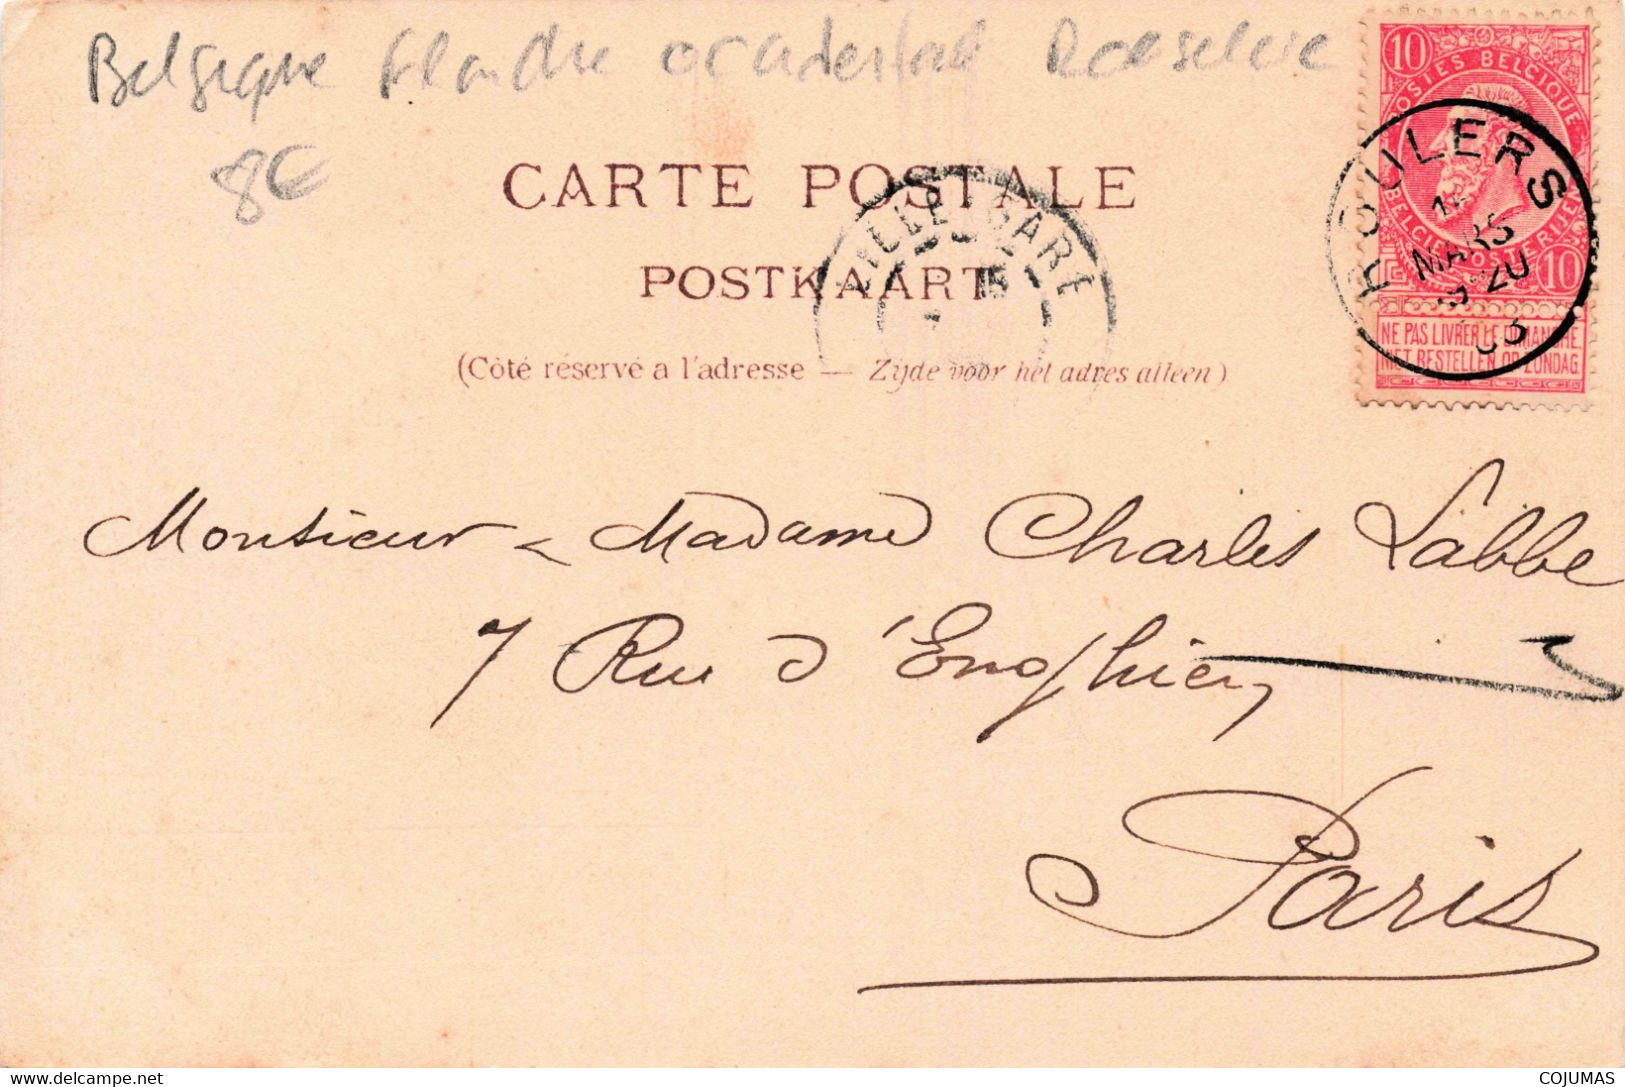 Belgique Flandre occidentale Roeselare
8€
CARTE POSTALE
POSTKAART
(Côté réservé a l'adresse — Zijde voor het adres alleen)
LILLE GARE
10
POSTES BELGIQUE
BELGISCHE POSTERIJEN
10
NE PAS LIVRER LE DIMANCHE
NIET BESTELLEN OP ZONDAG
ROULERS
MARS
03
Monsieur & Madame Charles Labbe
7 Rue d'Enghien
Paris
COJUMAS